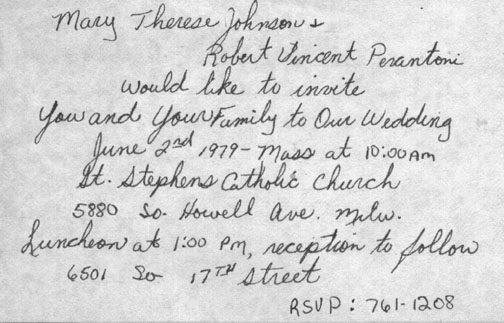 Mary Therese Johnson &
Robert Vincent Perantoni
would like to invite
You and Your Family to Our Wedding
June 2nd 1979 - Mass at 10:00 AM
St. Stephens Catholic Church
5880 So. Howell Ave. Milw.
Luncheon at 1:00 PM, reception to follow
6501 So 17TH Street
RSVP: 761-1208